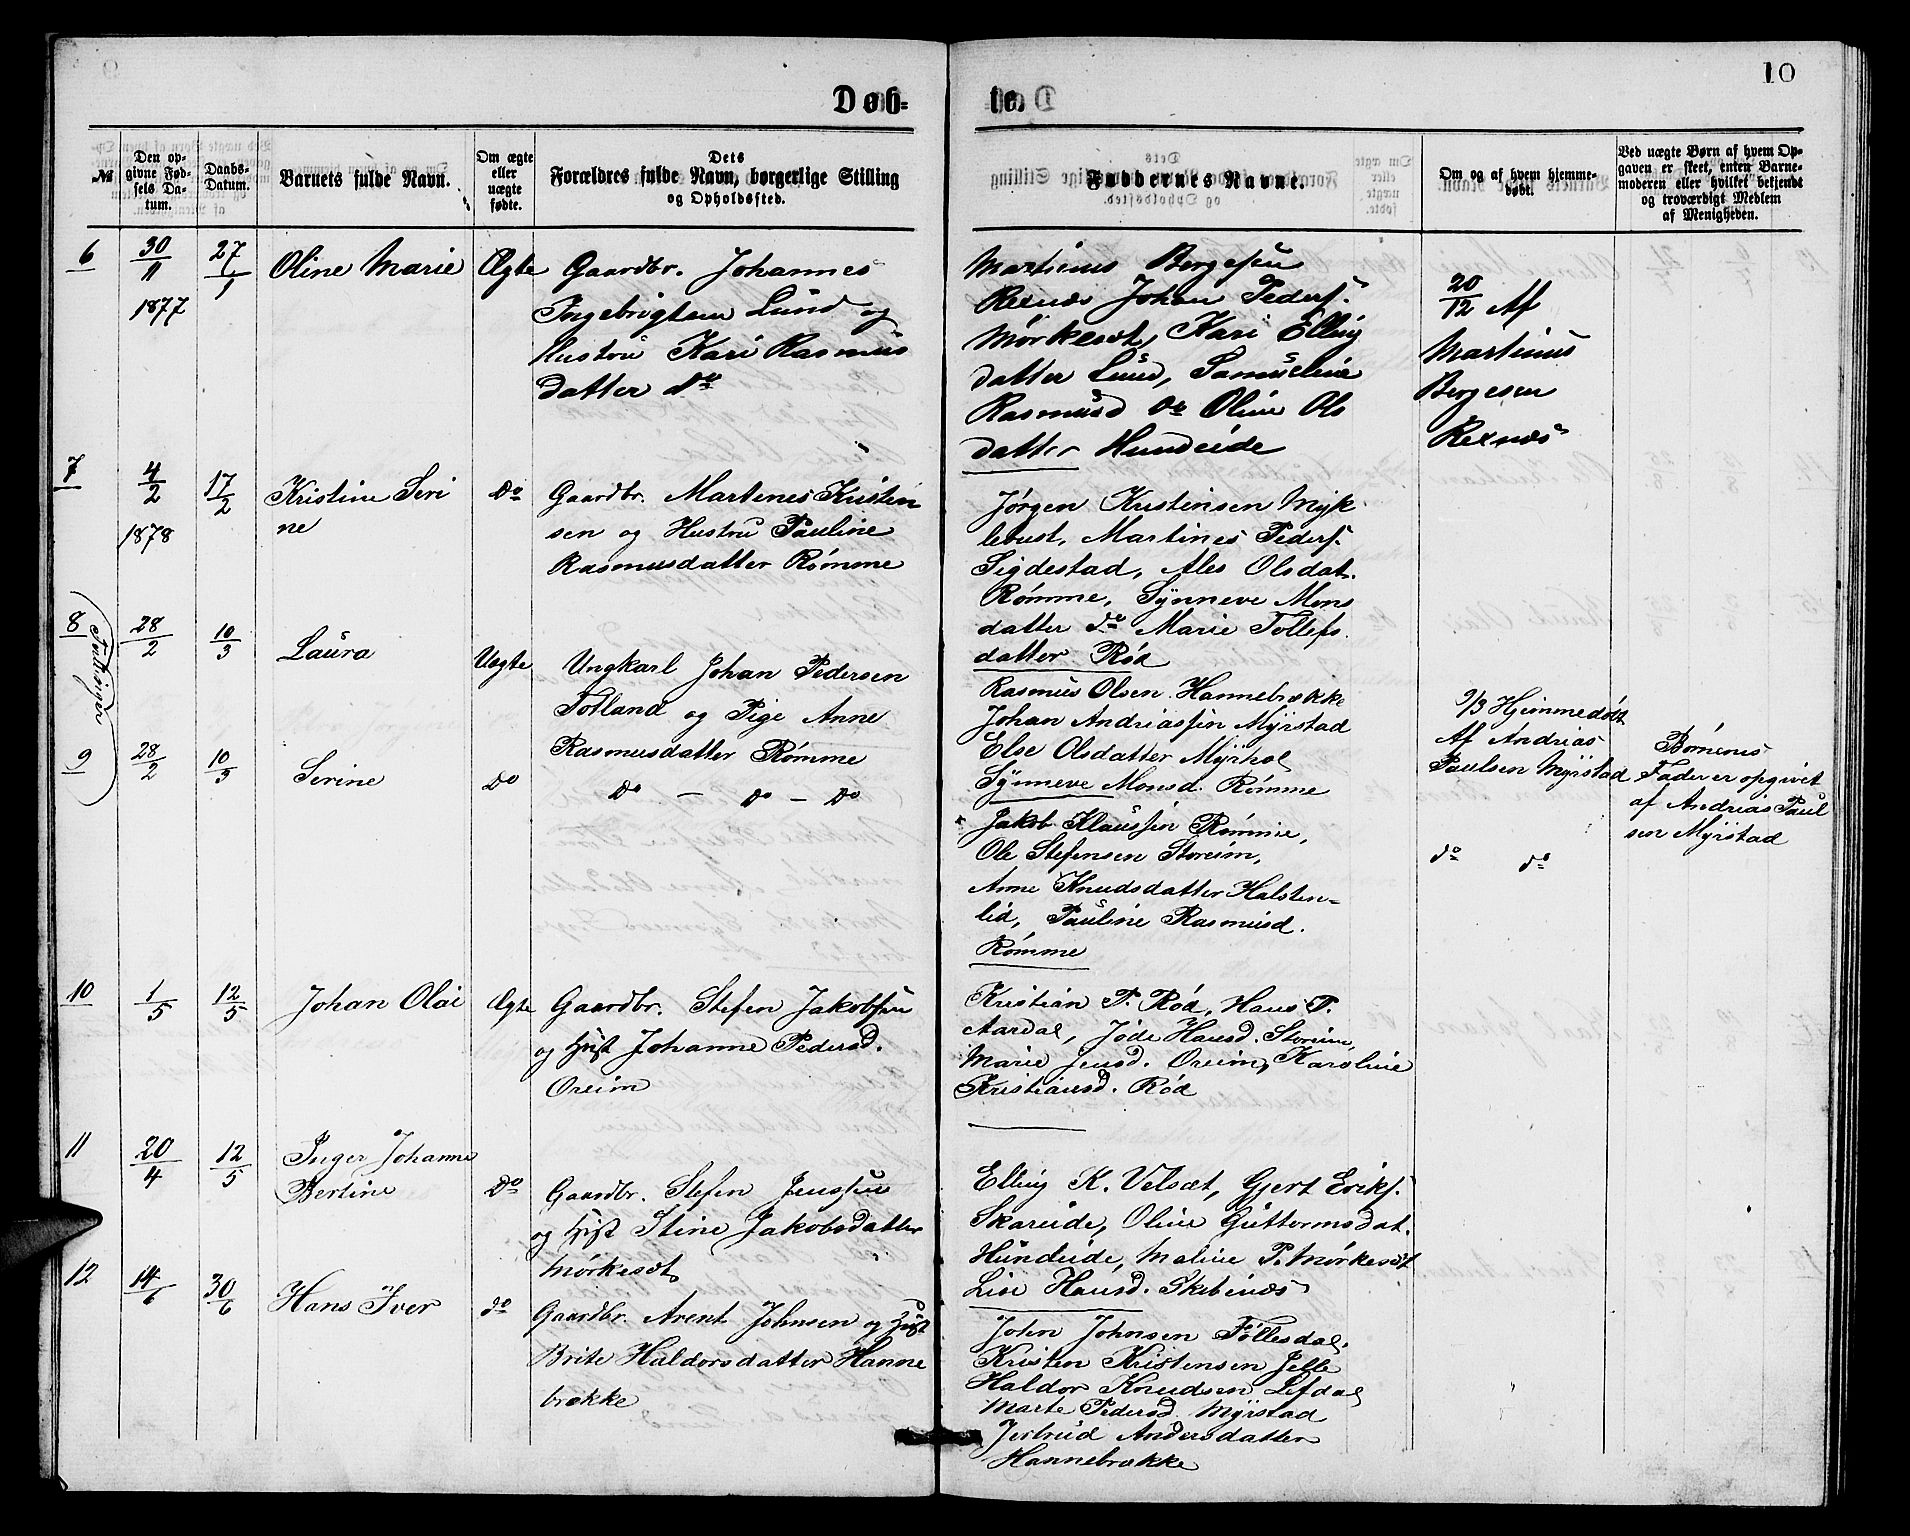 10
Døb-
te.
№
Den op-
givne Fød-
sels Da-
tum.
Daabs-
Datum.
Barnets fulde Navn.
Om ægte
eller
uægte
fødte.
Dets
Forældres fulde Navn, borgerlige Stilling
og Opholdssted.
Faddernes Navne.
Om og af hvem hjemme-
døbt.
Ved uægte Børn af hvem Op-
gaven er skeet, enten Barne-
moderen eller hvilket bekjendt
og troværdigt Medlem
af Menigheden.
6
30/11
1877
27/1
Oline Marie
Ægte
Gaardbr. Johannes
Ingebrigtsen Lund og
Hustru Kari Rasmus
datter do
Martinus Bergesen
Rexnæs Johan Peders.
Mørkesæt, Kari Elling
datter Lund, Samueline
Rasmusd do Oline Ols
datter Hundeide
20/12 Af
Martinus
Bergesen
Rexnæs
7
4/2
1878
17/2
Kristine Seri
ne
Do
Gaardbr. Martines Kristen
sen og Hustru Pauline
Rasmusdatter Rømme
Jørgen Kristensen Myk
lebust, Martines Peders.
Sigdestad, Ales Olsdat.
Rømme, Synneve Mons
datter do Marie Tollefs.
datter Rød
8
(Tvillinger)
28/2
10/3
Laura
Uegte
Ungkarl Johan Pedersen
Totland og Pige Anne
Rasmusdatter Rømme
Rasmus Olsen Hannebrække
Johan Andriassen Myrstad
Else Olsdatter Myrhol
Synneve Monsd. Rømme
2/3 Hjemmedøbt
Af Andrias
Paulsen Myrstad
Børnenes
Fader er opgivet
af Andrias Paul
sen Myrstad
9
28/2
10/3
Serine
Do
Do - Do - Do
Jakob Klaussen Rømme,
Ole Stefensen Storeim,
Anne Knudsdatter Halsten-
lid, Pauline Rasmusd.
Rømme
do do
10
1/5
12/5
Johan Olai
Ægte
Gaardbr. Stefen Jakobsen
og Hust Johanne Pedersd.
Oreim
Kristian P. Rød, Hans P.
Aardal, Jøde Hansd. Storeim,
Marie Jensd. Oreim, Karoline
Kristiansd. Rød
11
20/4
12/5
Inger Johanne
Bertine
Do
Gaardbr. Stefen Jenssen
og Hust Stine Jakobsdatter
Mørkesæt
Elling K. Velsæt, Gjert Eriks.
Skareide, Oline Guttormsdat.
Hundeide, Maline P. Mørkesæt
Lise Hansd. Skebenæs
12
14/6
30/6
Hans Iver
do
Gaardbr. Arent Johnsen og Hust
Brite Haldorsdatter Hanne
brække
John Johnsen Føllesdal,
Kristen Kristensen Jelle
Haldor Knudsen Lefdal
Marte Pedersd. Myrstad
Jertrud Andersdatter
Hannebrække